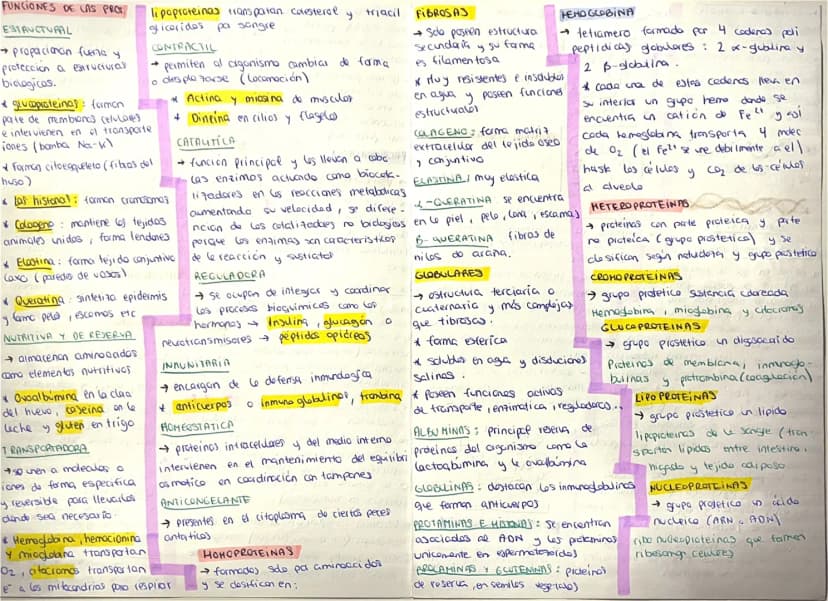 FUNCIONES DE LAS PROT
ESTRUCTURAL
→ proporcionan fuerza y
protección a estructuras
biológicas.
* glucoproteínas: forman
parte de membranas celulares
e intervienen en el transporte
iones (bomba Na-K)
* Forman citoesqueleto (fibras del
huso)
* Las histonas: forman cromosomas
* Colágeno: mantiene los tejidos
animales unidos, forma tendones
* Elastina: forma tejido conjuntivo
laxo (paredes de vasos)
* Queratina: sintetiza epidermis
y forma pelo, escamas etc
NUTRITIVA Y DE RESERVA
→ almacenan aminoácidos
como elementos nutritivos
* Ovoalbúmina en la clara
del huevo, caseína en la
leche y gluten en trigo
TRANSPORTADORA
→ se unen a moléculas o
iones de forma específica
y reversible para llevarlos
dónde sea necesario.
* Hemoglobina, hemocianina
y mioglobina transportan
O₂, citocromos transportan
e⁻ a las mitocondrias para respirar
lipoproteínas transportan colesterol y triacil
glicéridos por sangre
CONTRÁCTIL
→ permiten al organismo cambiar de forma
o desplazarse (locomoción)
* Actina y miosina de músculos
* Dineína en cilios y flagelos
CATALÍTICA
→ función principal y las llevan a cabo
las enzimas actuando como biocata-
lizadores en las reacciones metabólicas
aumentando su velocidad, se diferen-
ncian de los catalizadores no biológicos
porque las enzimas son característicos
de la reacción y sustrato
REGULADORA
→ Se ocupan de integrar y coordinar
los procesos bioquímicos como las
hormonas → Insulina, glucagón o
neurotransmisores → péptidos opiáceos
INMUNITARIA
→ encargan de la defensa inmunológica
* anticuerpos o inmunoglobulinas, trombina
HOMEOSTÁTICA
→ proteínas intracelulares y del medio interno
intervienen en el mantenimiento del equilibri
osmótico en coordinación con tampones
ANTICONGELANTE
→ presentes en el citoplasma de ciertos peces
antárticos
HOMOPROTEÍNAS
→ formadas solo por aminoácidos
y se clasifican en:
FIBROSAS
→ Solo poseen estructura
secundaria y su forma
es filamentosa
* Muy resistentes e insolubles
en agua y poseen funciones
estructurales
COLÁGENO: forma matriz
extracelular del tejido óseo
y conjuntivo
ELASTINA: muy elástica
α-QUERATINA se encuentra
en la piel, pelo, lana, escamas
β-QUERATINA fibras de
hilos de araña.
GLOBULARES
→ estructura terciaria o
cuaternaria y más complejas
que fibrosas.
* forma esférica
* solubles en agua y disoluciones
salinas.
* Poseen funciones activas
de transporte, enzimática, reguladora...
ALBÚMINAS: principal reserva de
proteínas del organismo como la
lactoalbúmina y la ovoalbúmina
GLOBULINAS: destacan las inmunoglobulinas
que forman anticuerpos
PROTAMINAS E HISTONAS: se encuentran
asociadas al ADN y las protaminas
unicamente en espermatozoides)
PROLAMINAS Y GLUTENINAS: proteínas
de reserva, en semillas vegetales)
HEMOGLOBINA
→ tetrámero formado por 4 cadenas poli
peptídicas globulares: 2 α-globulina y
2 β-globulina.
* cada una de estas cadenas lleva en
su interior un grupo hemo donde se
encuentra un catión de Fe²⁺ y así
cada hemoglobina transporta 4 moléc
de O₂ (el Fe²⁺ se une débilmente a él)
hasta las células y CO₂ de las células
al alveolo
HETEROPROTEÍNAS
→ proteínas con parte proteica y parte
no proteica (grupo prostético) y se
clasifican según naturaleza y grupo prostético
CROMOPROTEÍNAS
→ grupo prostético sustancia coloreada
Hemoglobina, mioglobina y citocromos
GLUCOPROTEÍNAS
→ grupo prostético un oligosacárido
Proteínas de membrana, inmunoglo-
bulinas y protrombina (coagulación)
LIPOPROTEÍNAS
→ grupo prostético un lípido
lipoproteínas de la sangre (tran
sportan lípidos entre intestino,
hígado y tejido adiposo
NUCLEOPROTEÍNAS
→ grupo prostético un ácido
nucleico (ARN o ADN)
ribonucleoproteínas que forman
ribosomas celulares